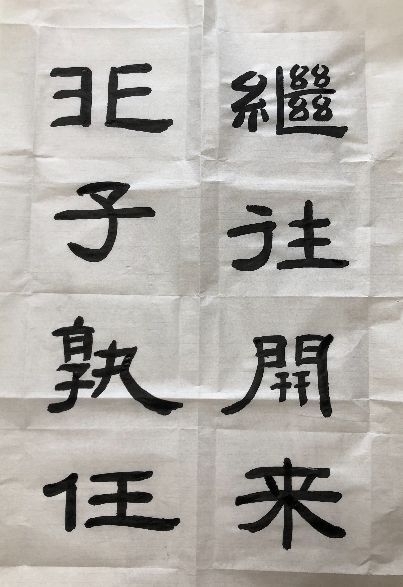 繼往開来
非子孰任